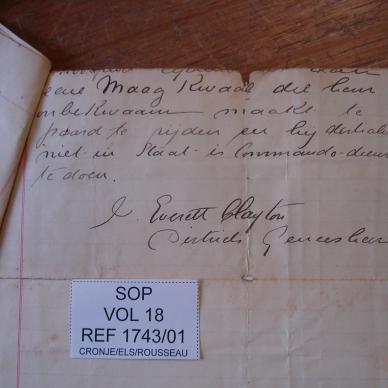 eene Maag Kwaal die hem
onbekwaam maakt te
paard te rijden en hij derhalve
niet in Staat is Commando-dienst
te doen.
Everett Clayton
Districts Geneesheer
SOP
VOL 18
REF 1743/01
CRONJE/ELS/ROUSSEAU